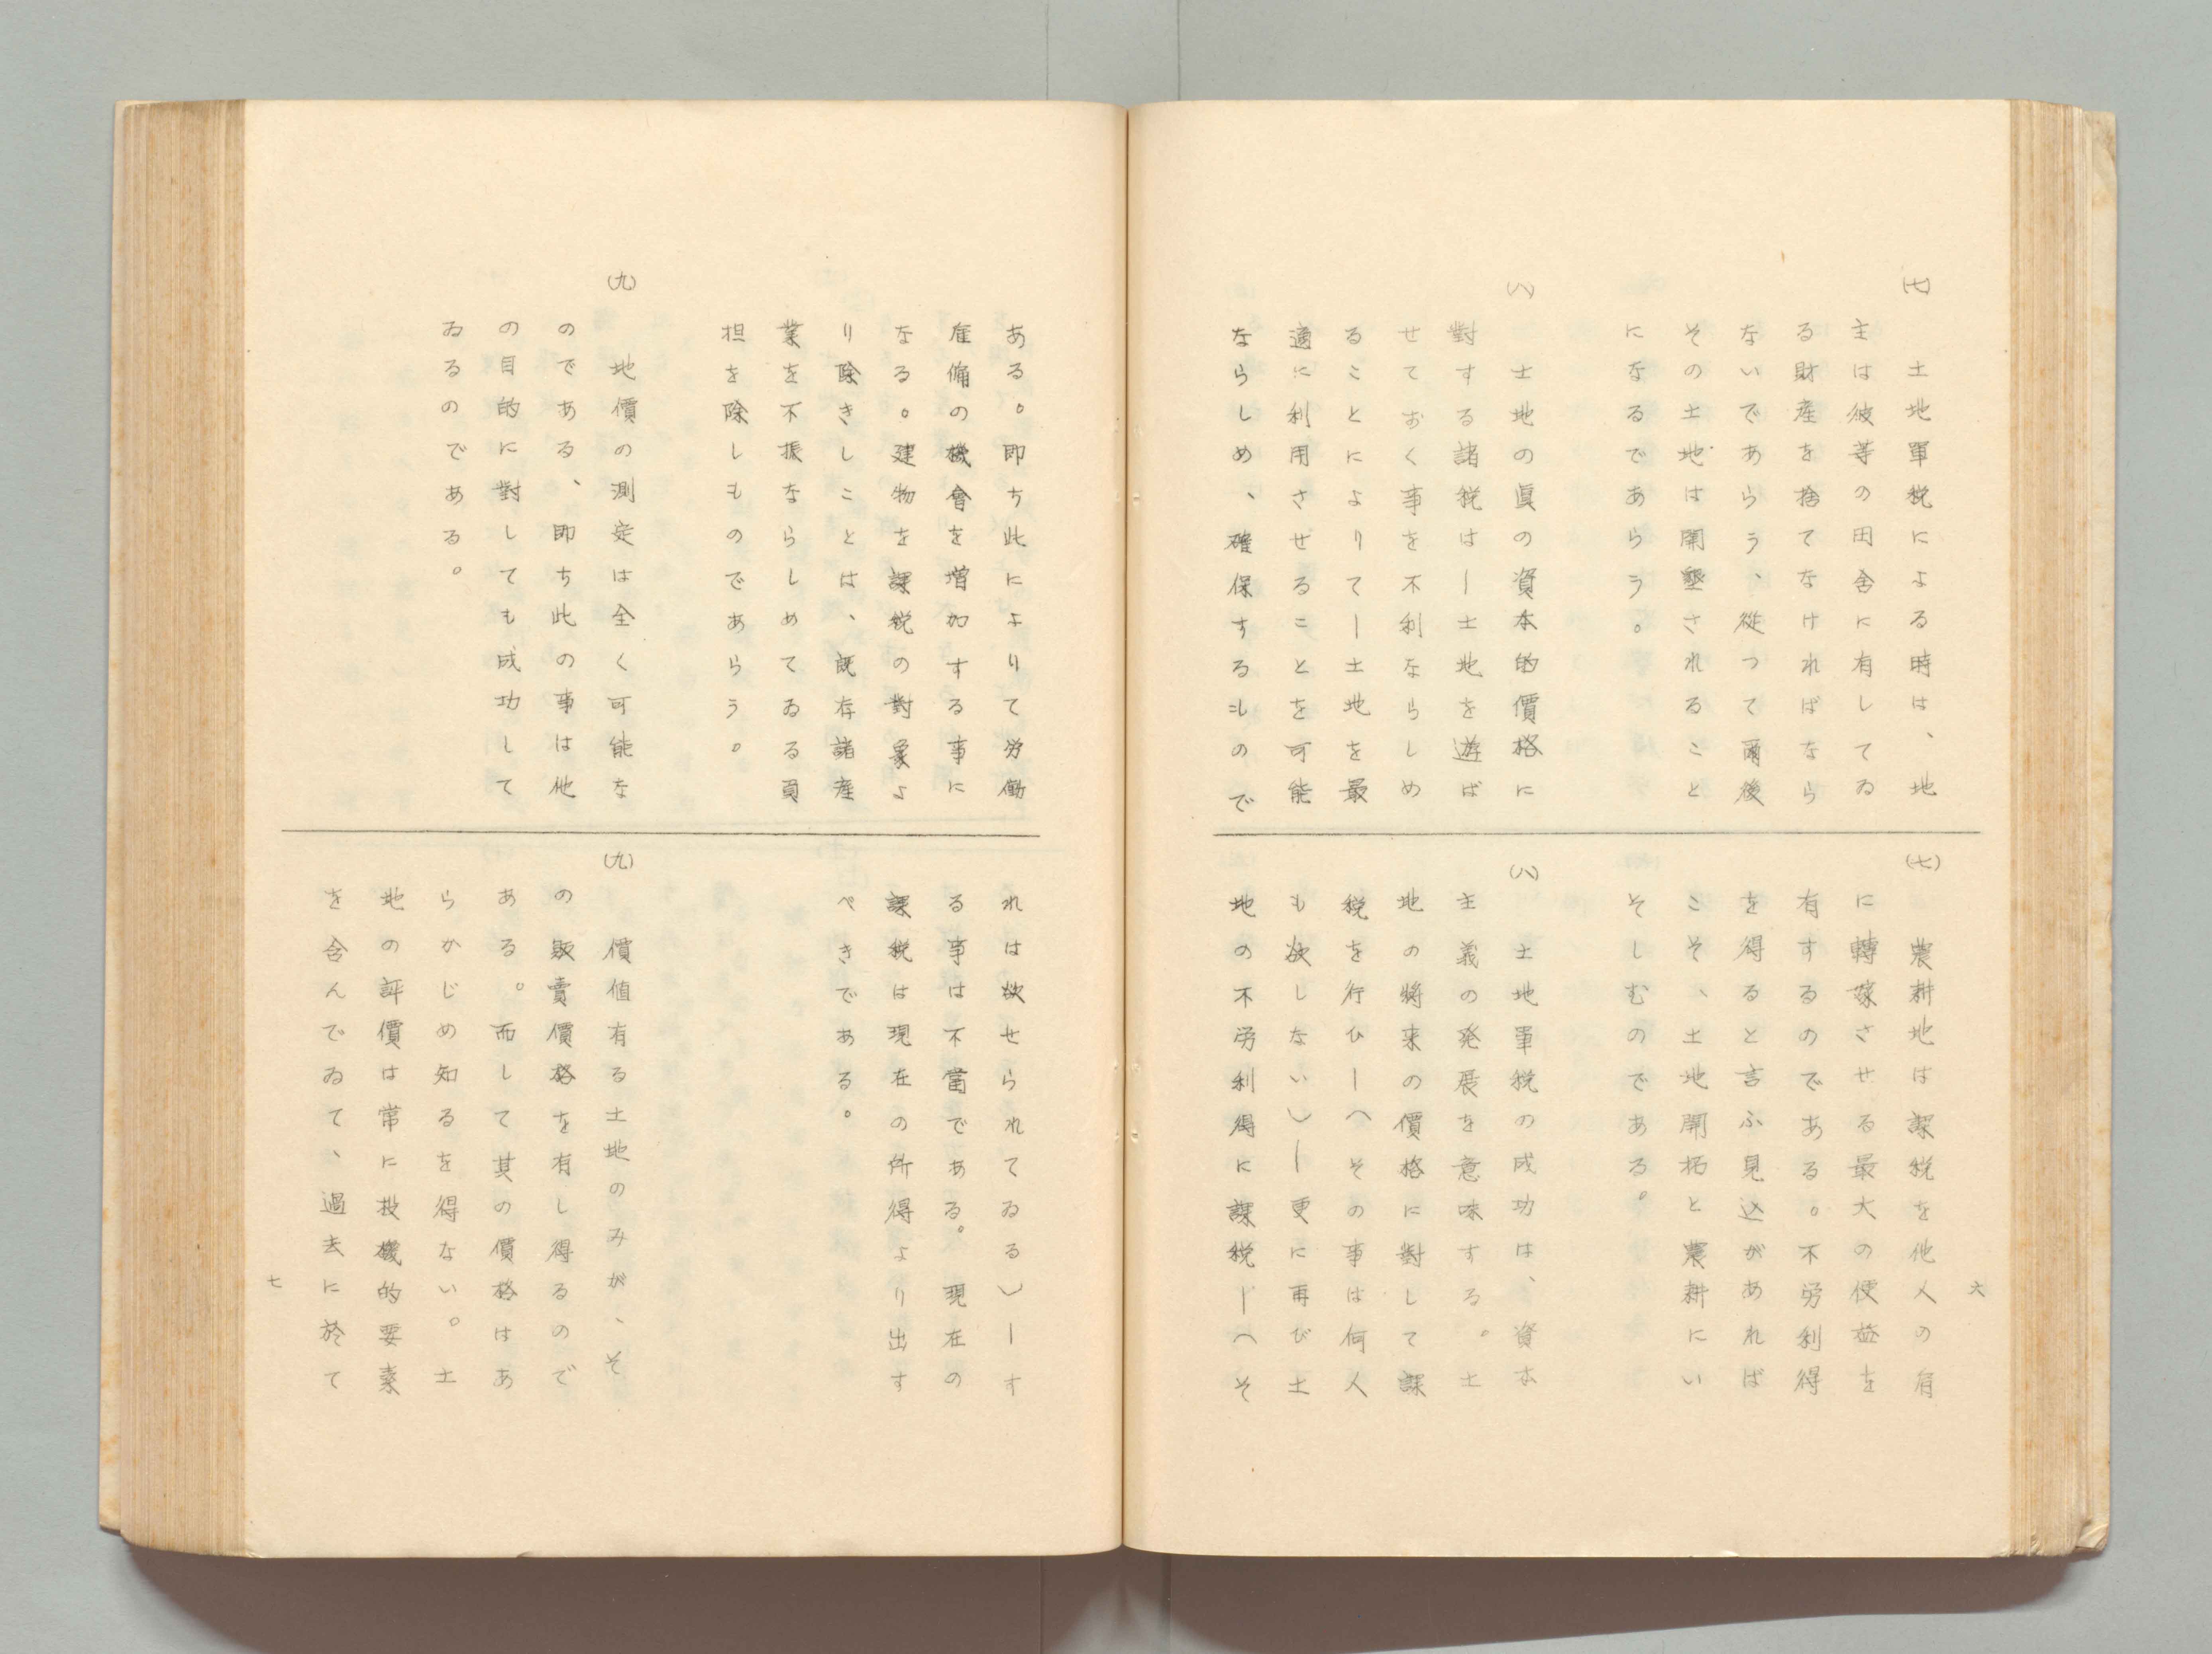 (七)
土地單税による時は、地
主は彼等の田舎に有してゐ
る財産を捨てなければなら
ないであらう、從つて爾後
その土地は開墾されること
になるであらう。
(八)
土地の眞の資本的價格に
對する諸税は―土地を遊ば
せておく事を不利ならしめ
ることによりて―土地を最
適に利用させることを可能
ならしめ、確保するもので
(七)
農耕地は課税を他人の有
に轉嫁させる最大の便益を
有するのである。不労利得
を得ると言ふ見込があれば
こそ、土地開拓と農耕にい
そしむのである。
(八)
土地單税の成功は、資本
主義の発展を意味する。土
地の將来の價格に對して課
税を行ひ―(その事は何人
も欲しない)―更に再び土
地の不労利得に課税―(そ
六
ある。即ち此によりて労働
雇傭の機會を増加する事に
なる。建物を課税の對象よ
り除きしことは、既存諸産
業を不振ならしめてゐる負
担を除しものであらう。
(九)
地價の測定は全く可能な
のである、即ち此の事は他
の目的に對しても成功して
ゐるのである。
れは欲せられてゐる)―す
る事は不當である。現在の
課税は現在の所得より出す
べきである。
(九)
價値有る土地のみが、そ
の販賣價格を有し得るので
ある。而して其の價格はあ
らかじめ知るを得ない。土
地の評價は常に投機的要素
を含んでゐて、過去に於て
七